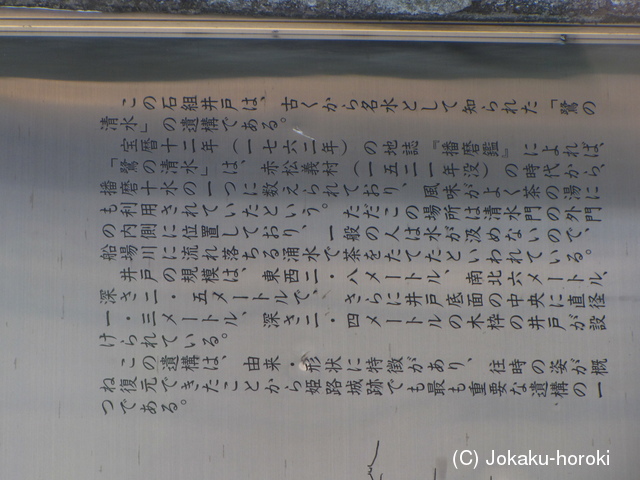 この石組井戸は、古くから名水として知られた「鷺の
清水」の遺構である。
宝暦十二年（一七六二年）の地誌『播磨鑑』によれば、
「鷺の清水」は、赤松義村（一五二一年没）の時代から、
播磨十水の一つに数えられており、風味がよく茶の湯に
も利用されていたという。ただこの場所は清水門の外門
の内側に位置しており、一般の人は水が汲めないので、
船場川に流れ落ちる涌水で茶をたてたといわれている。
井戸の規模は、東西二・八メートル、南北六メートル、
深さ二・五メートルで、さらに井戸底面の中央に直径
一・三メートル、深さ二・四メートルの木枠の井戸が設
けられている。
この遺構は、由来・形状に特徴があり、往時の姿が概
ね復元できたことから姫路城跡でも最も重要な遺構の一
つである。
(C) Jokaku-horoki